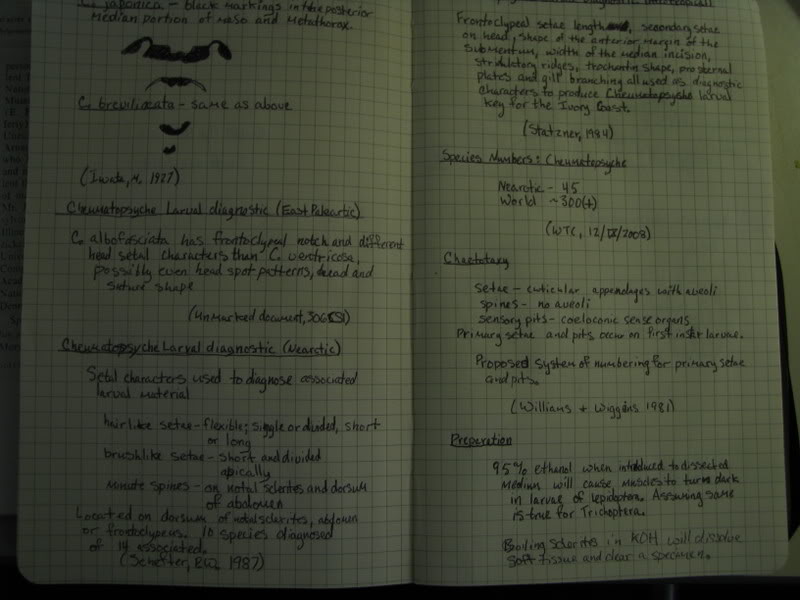 C. japonica - black markings in the posterior
median portion of meso and metathorax.
C. brevilineata - same as above
(Iwata, M. 1927)
Cheumatopsyche Larval diagnostic (East Paleartic)
C. albofasciata has frontoclypeal notch and different
head setal characters than C. ventricosa,
possibly even head spot patterns, head and
suture shape
(Unmarked document,
Cheumatopsyche Larval diagnostic (Nearctic)
Setal characters used to diagnose associated
larval material
hairlike setae - flexible; single or divided, short
or long
brushlike setae - short and divided
apically
minute spines - on notal sclerites and dorsum
of abdomen
Located on dorsum of notal sclerites, abdomen
or frontoclypeus. 10 species diagnosed
of 14 associated.
(Schefter, P.W. 1987)
Frontoclypeal setae length, secondary setae
on head, shape of the anterior margin of the
submentum, width of the median incision,
stridulatory ridges, trochantin shape, prosternal
plates and gill branching all used as diagnostic
characters to produce Cheumatopsyche larval
key for the Ivory Coast.
(Statzner, 1984)
Species Numbers: Cheumatopsyche
Nearctic - 45
World ~300(+)
(WTC, 12/IX/2008)
Chaetotaxy
setae - cuticular appendages with alveoli
spines - no alveoli
sensory pits - coeloconic sense organs
Primary setae and pits occur on first instar larvae.
Proposed system of numbering for primary setae
and pits.
(Williams + Wiggins 1981)
Preparation
95% ethanol when introduced to dissected
medium will cause muscles to turn dark
in larvae of Lepidoptera. Assuming same
is true for Trichoptera.
Boiling sclerites in KOH will dissolve
soft tissue and clear a specimen.